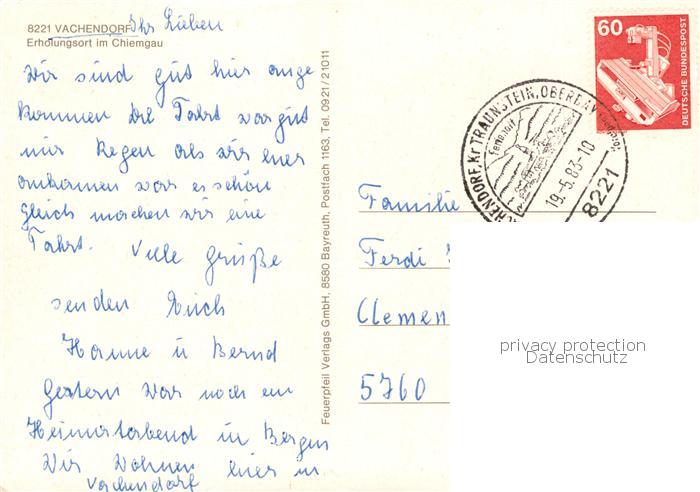 8221 VACHENDORF
Erholungsort im Chiemgau
Ihr Lieben
Wir sind gut hier ange
kommen Die Fahrt war gut
nur Regen als wir hier
ankamen war es schön
gleich machen wir eine
Fahrt. Viele Grüße
senden Euch
Hanne u Bernd
Gestern war noch ein
Heimatabend in Bergen
Wir wohnen hier in
Vachendorf
Feuerpfeil Verlags GmbH, 8580 Bayreuth, Postfach 1163, Tel. 0921 / 21011
60
DEUTSCHE BUNDESPOST
VACHENDORF, Kr TRAUNSTEIN, OBERBAY
Ferienort
19.-5.83-10
8221
Familie
Ferdi
Clemen
5760
privacy protection
Datenschutz